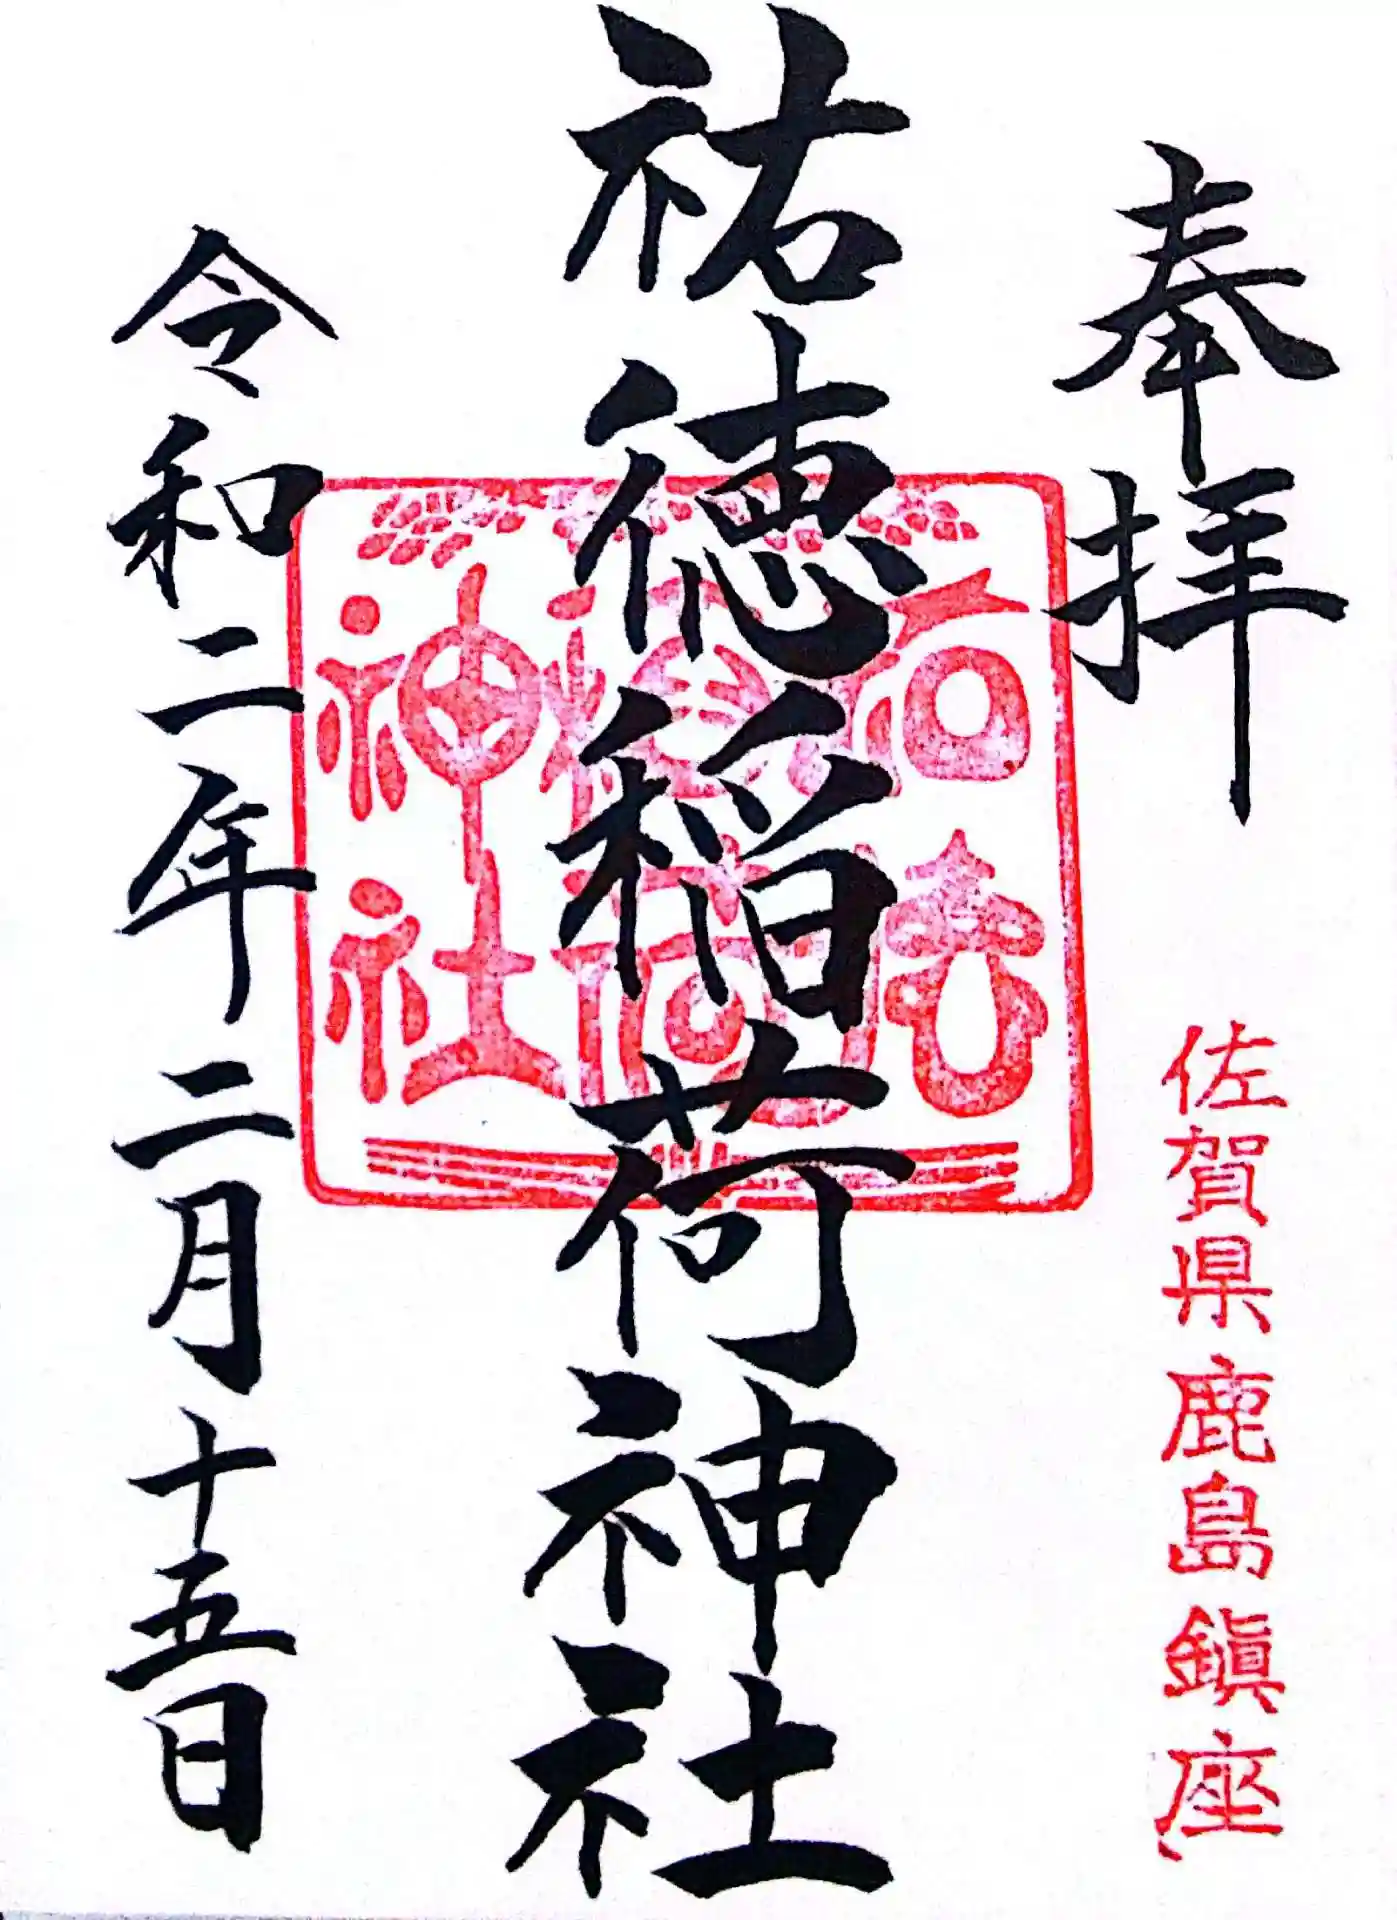 奉拝
佐賀県鹿島鎮座
祐徳稲荷神社
祐徳稲荷神社
令和二年二月十五日